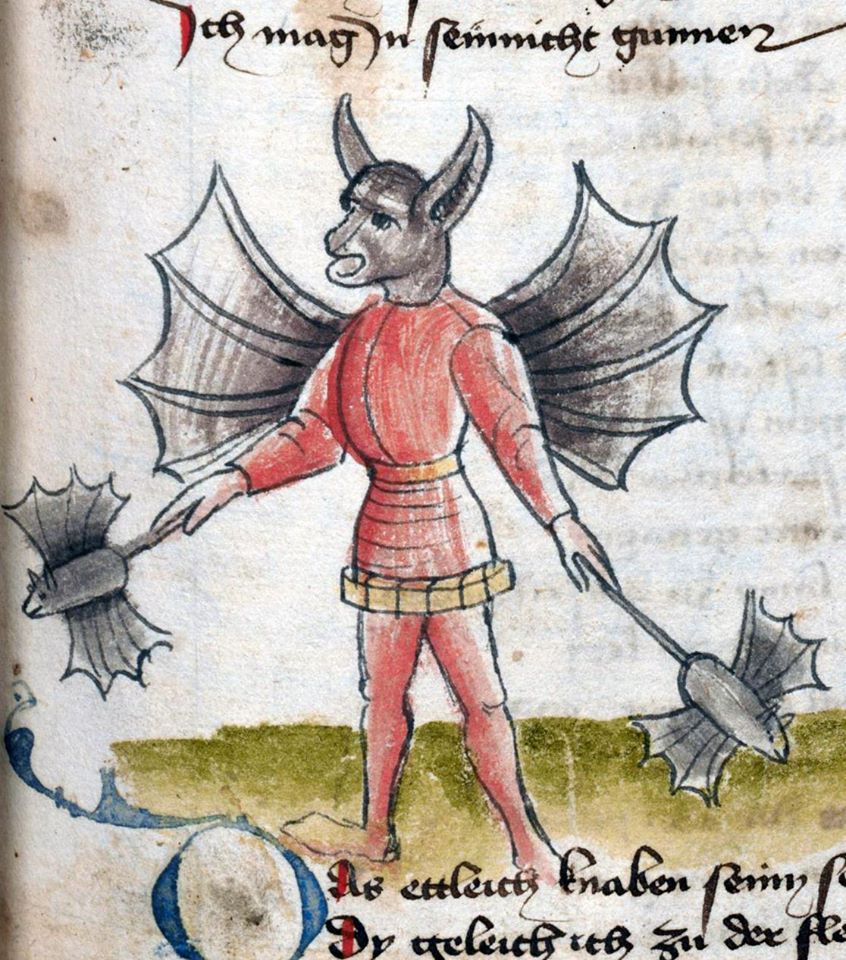 Ich mag In sein nicht gunnen
Das ettleich knaben seinn se
Dy geleich ich zu der fle